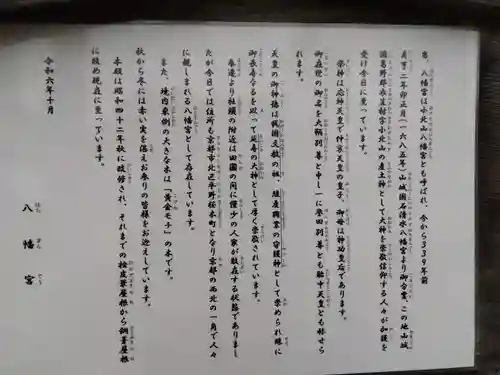 当、八幡宮は北山八幡宮とも呼ばれ、今から339年前
貞享二年卯正月(一六八五年)山城国石清水八幡宮より御勧請、この地山城
国葛野郡衣笠村字北山の産土神として大神を崇敬信仰する人々が加護を
受け今日に至っています。
祭神は応神天皇で仲哀天皇の皇子、御母は神功皇后であります。
御在世の御名を大鞆別尊と申し一に誉田別尊とも胎中天皇とも称せら
れます。
天皇の御神徳は我国文教の祖、殖産興業の守護神として崇められ殊に
御長寿なるを以って延命の大神として厚く崇敬されています。
春造より社頭の附近は田園の間に僅少の人家が散在する状態でありまし
たが今日では住所も京都市北区平野桜木町となり京都の西北の一角で人々
に親しまれる八幡宮として存在しています。
また、境内東側の大きな木は「黄金モチ」の木です。
秋から冬には赤い実を蓄えお参りの皆様をお迎えしています。
本殿は昭和四十二年秋に改修され、それまでの檜皮葺屋根から銅葺屋根
に改め現在に至っています。
令和六年十月
八幡宮